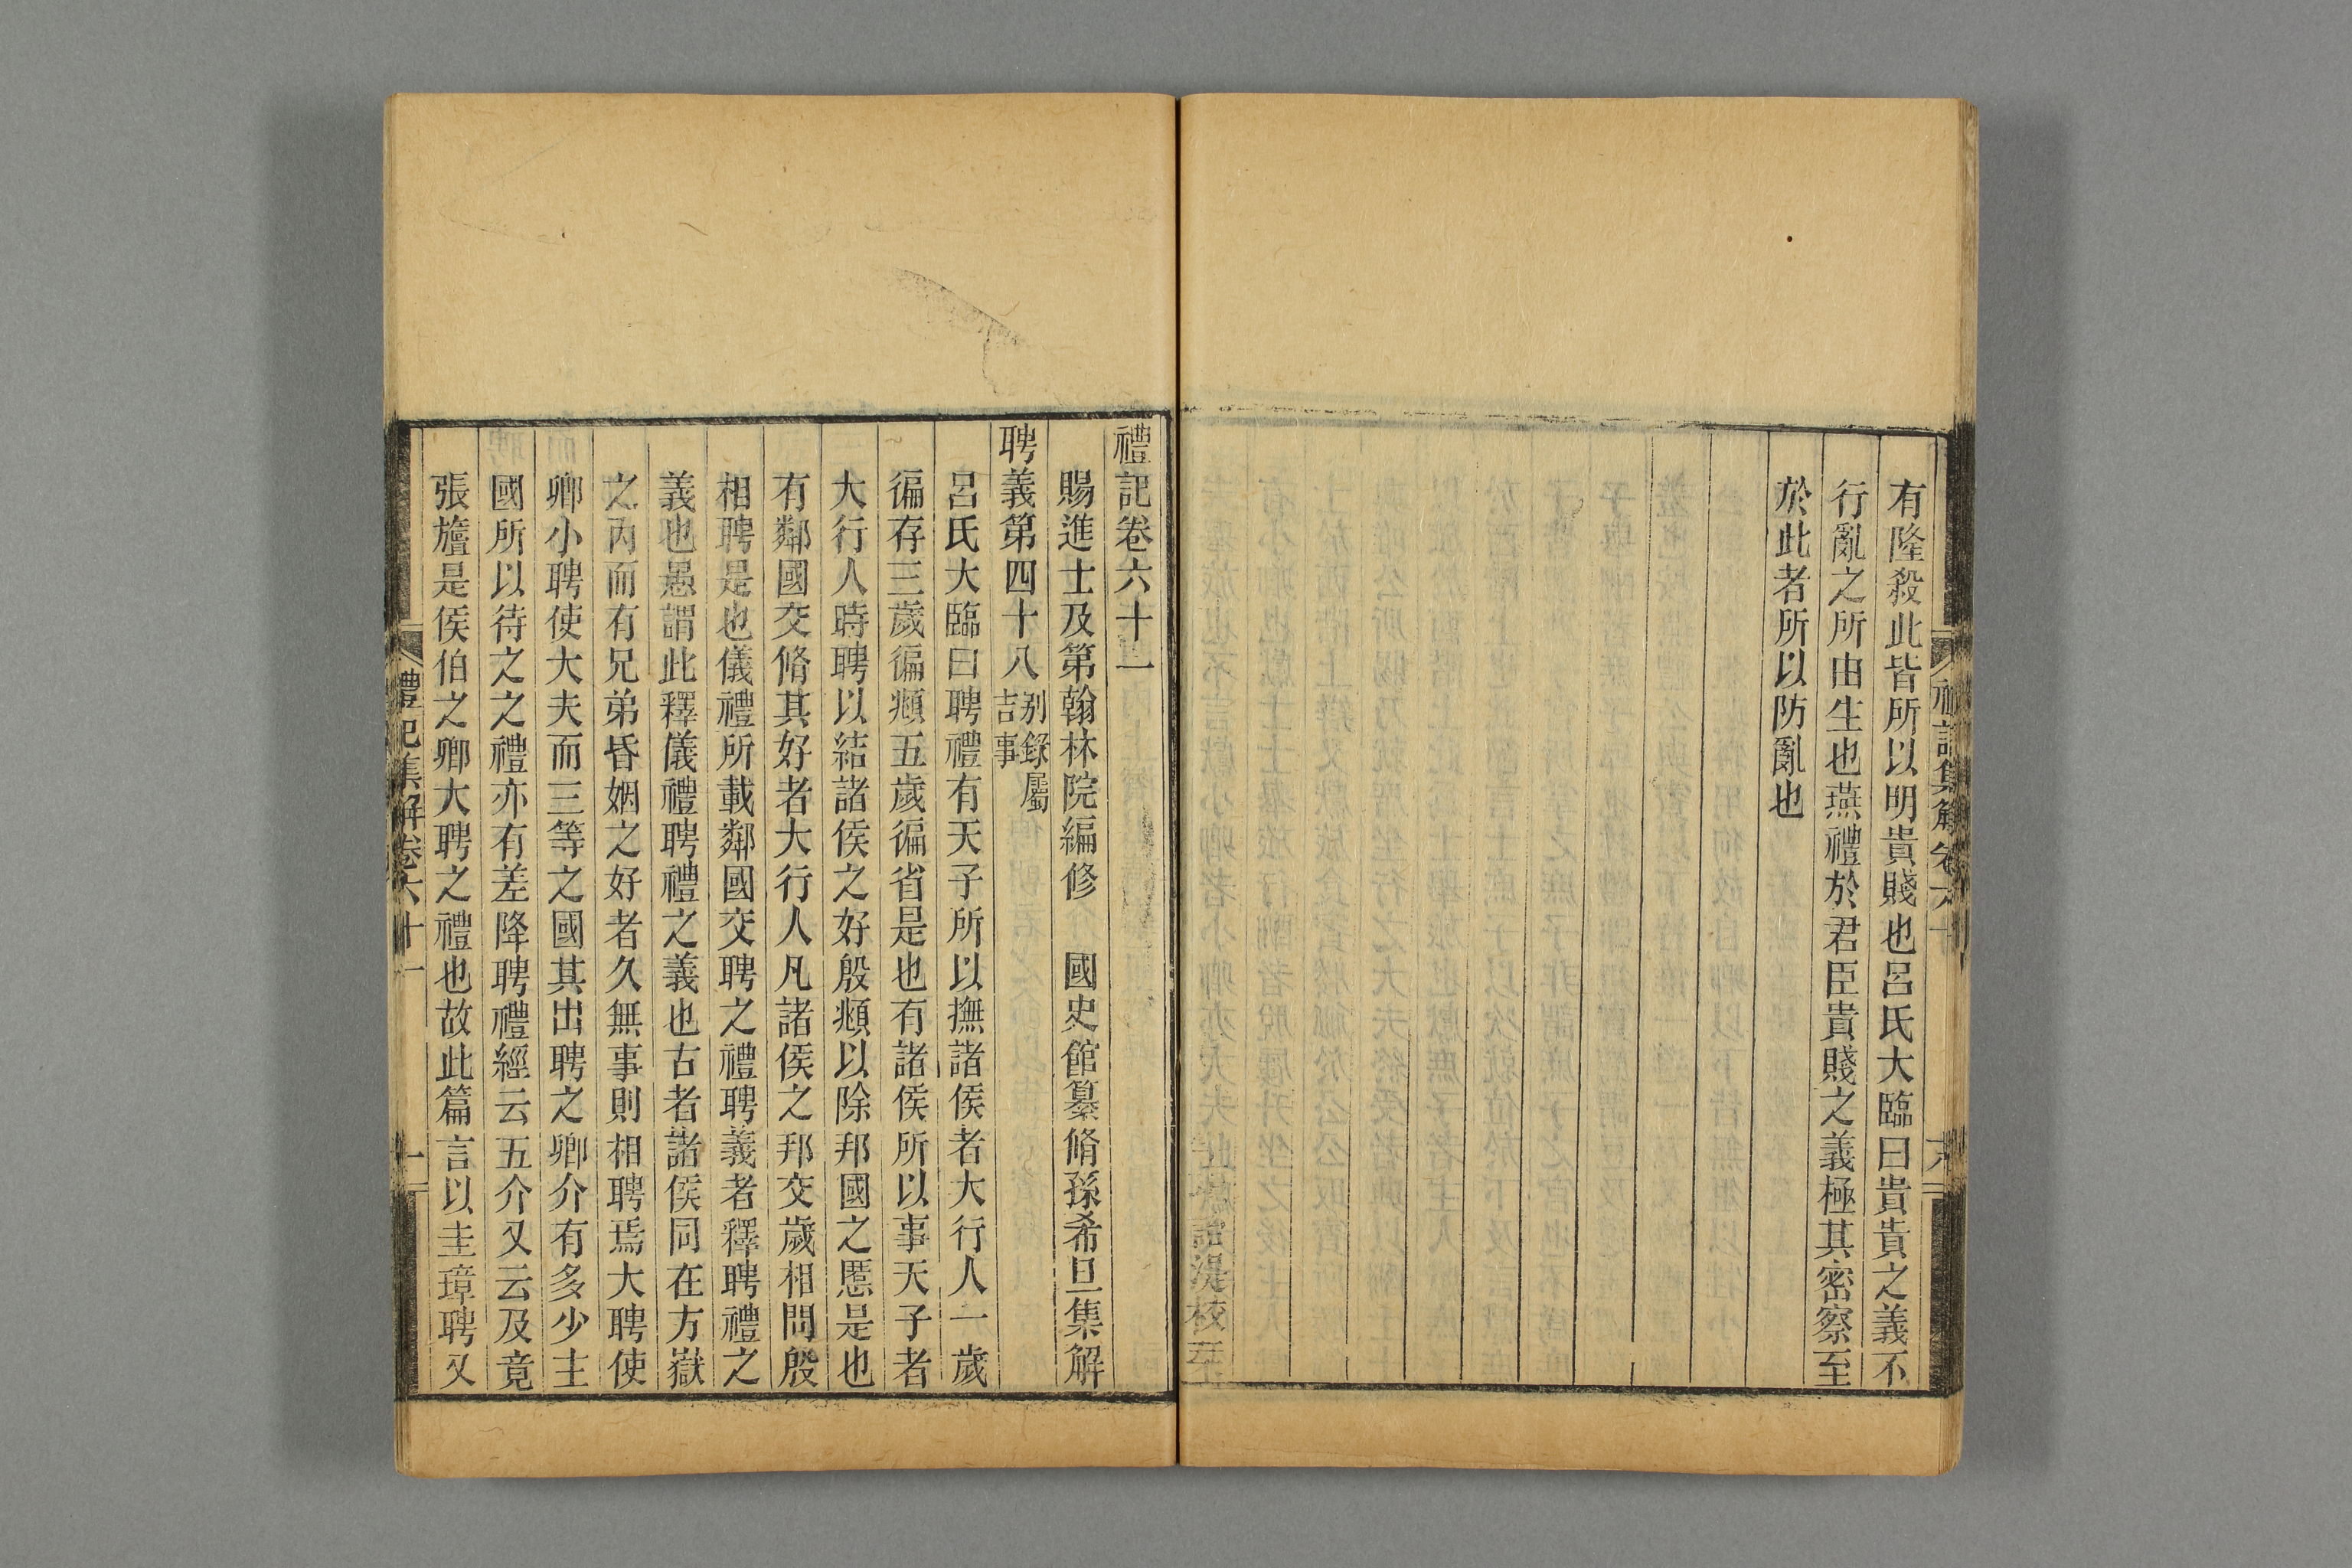 有隆殺此皆所以明貴賤也呂氏大臨曰貴貴之義不
行亂之所由生也燕禮於君臣貴賤之義極其密察至
於此者所以防亂也
禮記卷六十一
賜進士及第翰林院編修　國史館纂脩孫希旦集解
聘義第四十八别錄屬吉事
呂氏大臨曰聘禮有天子所以撫諸侯者大行人一歲
徧存三歲徧頫五歲徧省是也有諸侯所以事天子者
大行人時聘以結諸侯之好殷頫以除邦國之慝是也
有鄰國交脩其好者大行人凡諸侯之邦交歲相問殷
相聘是也儀禮所載鄰國交聘之禮聘義者釋聘禮之
義也愚謂此釋儀禮聘禮之義也古者諸侯同在方嶽
之內而有兄弟昏姻之好者久無事則相聘焉大聘使
卿小聘使大夫而三等之國其出聘之卿介有多少主
國所以待之之禮亦有差降聘禮經云五介又云及竟
張旜是侯伯之卿大聘之禮也故此篇言以圭璋聘又
禮記集解卷六十一
一